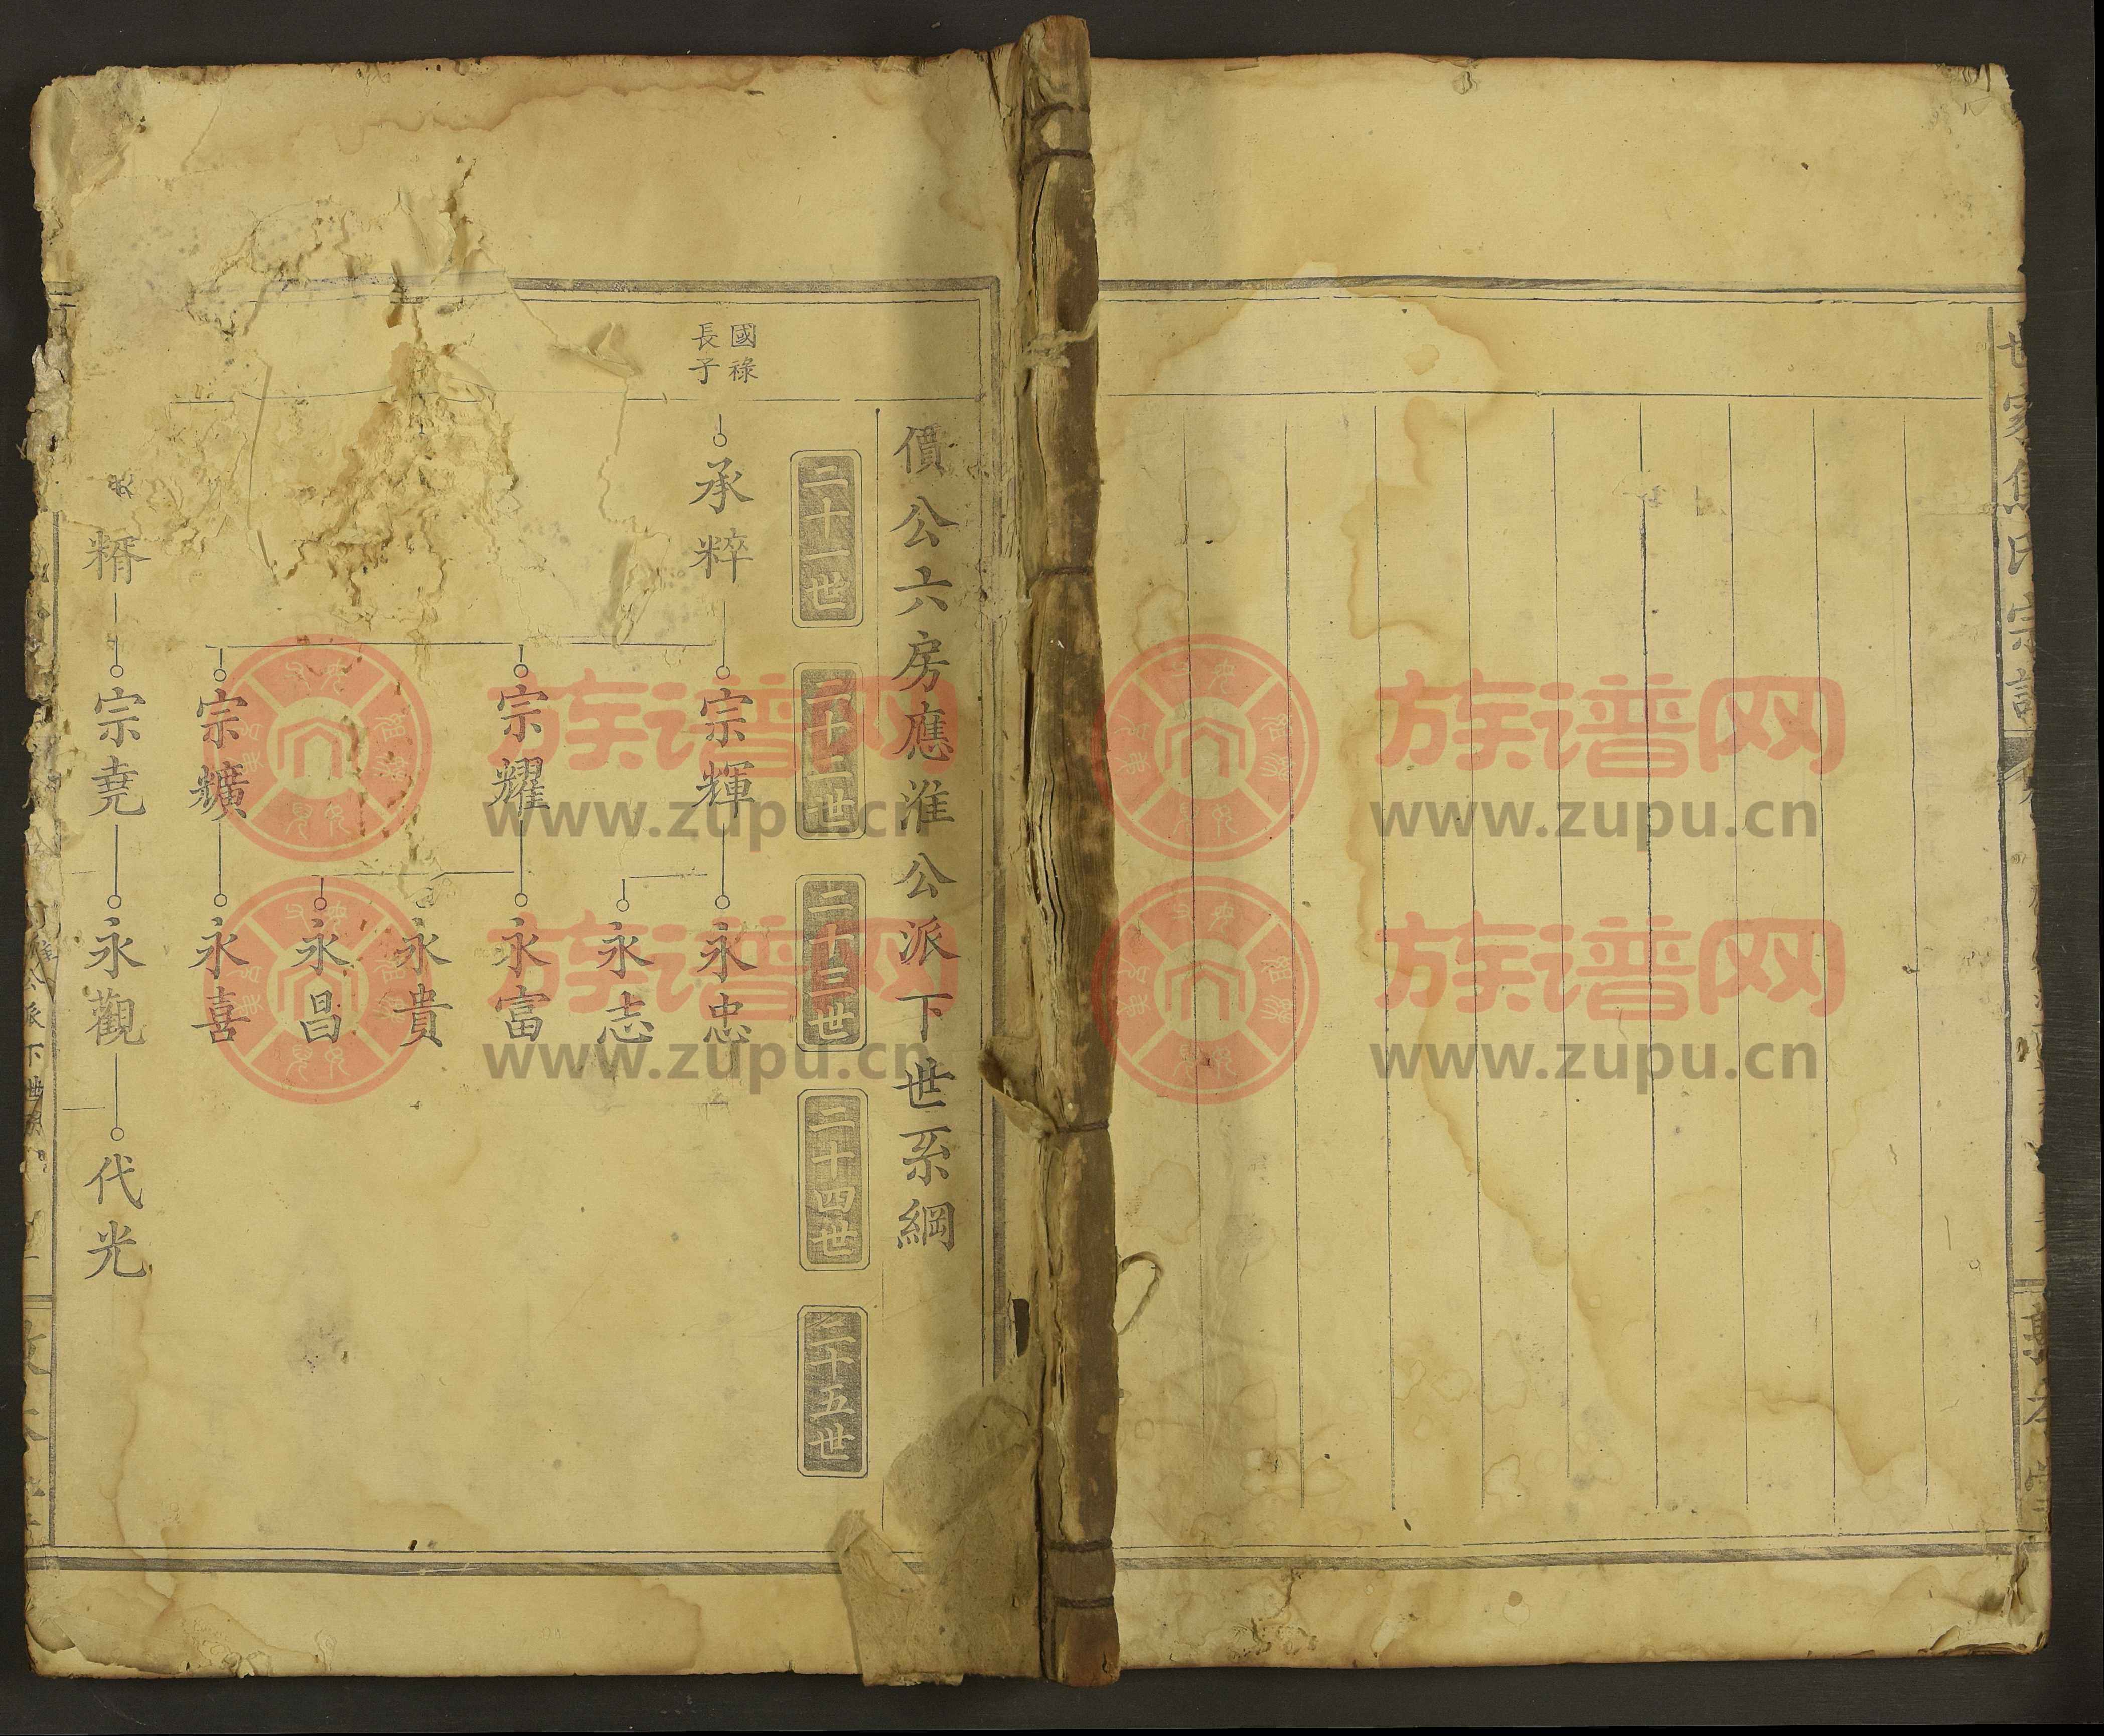 價公六房應淮公派下世系綱
二十一世
二十二世
二十三世
二十四世
二十五世
國祿
長子
承粹
宗輝
永忠
永志
宗耀
永富
永貴
永昌
宗爌
永喜
糈
宗堯
永觀
代光
公派下世
氏宗譜
族谱网
www.zupu.cn
族谱网
www.zupu.cn
族谱网
www.zupu.cn
族谱网
www.zupu.cn